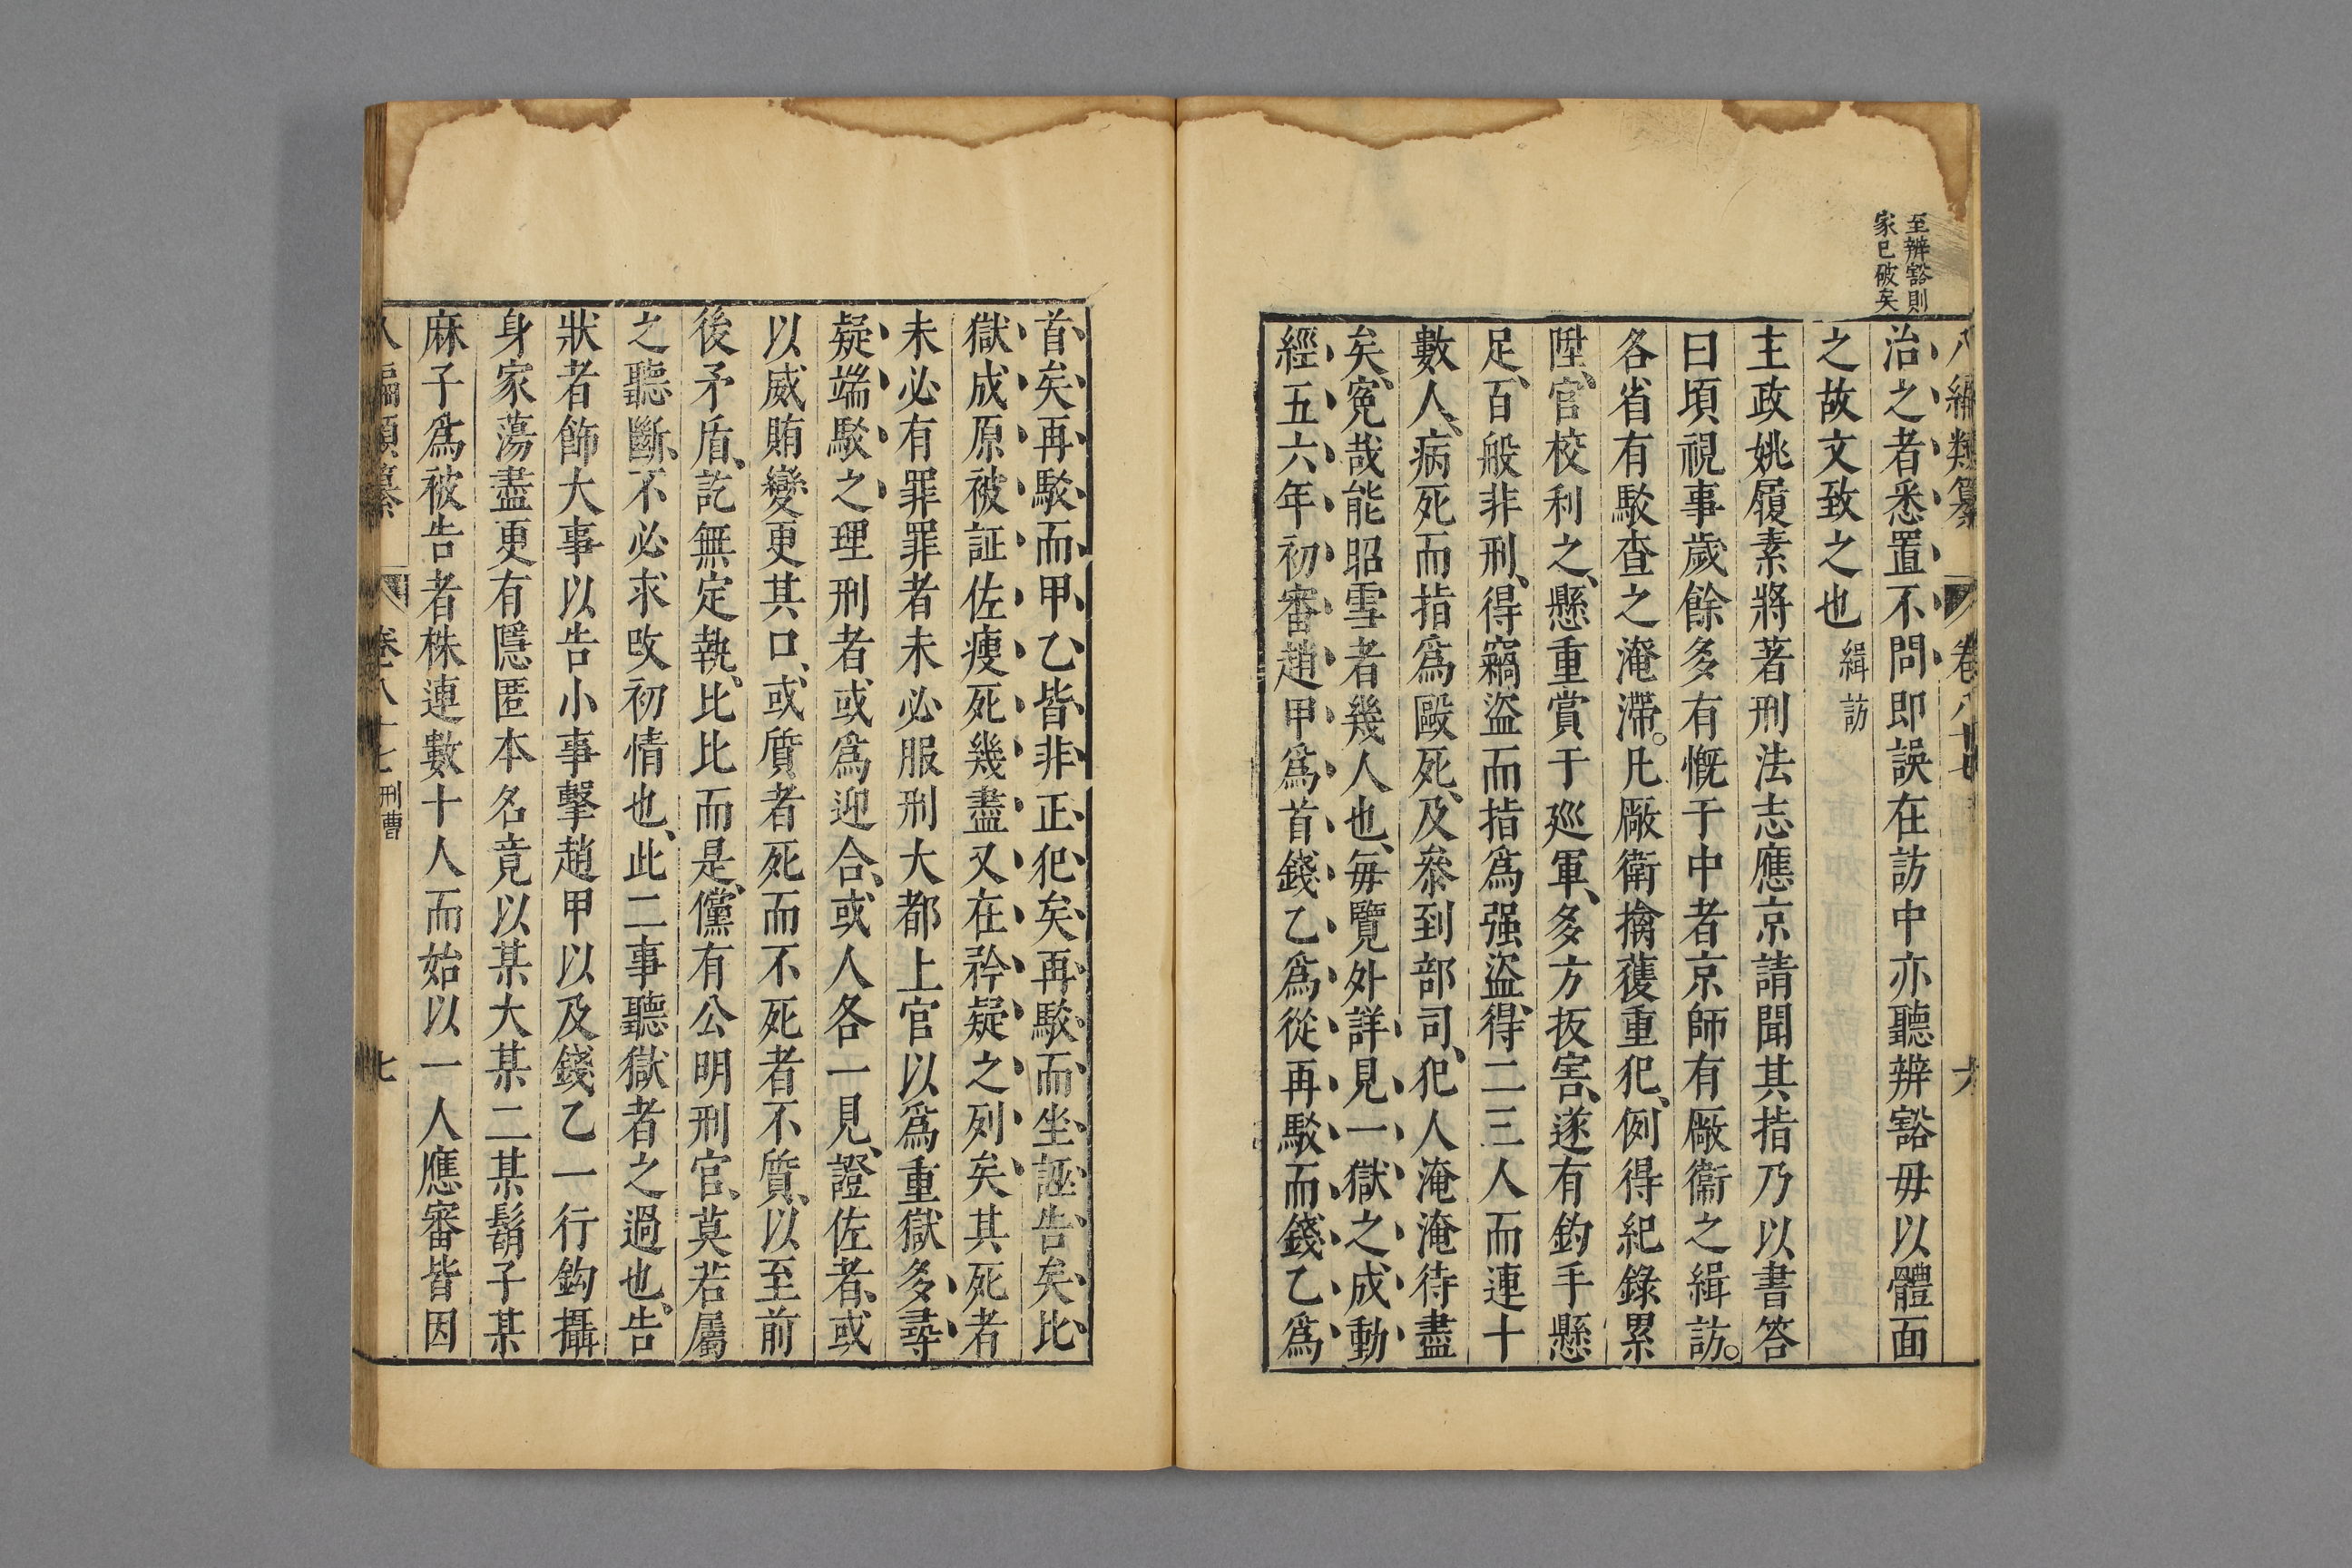 至辨豁則
家已破矣
治之者悉置不問即誤在訪中亦聽辨豁毋以體面
之故文致之也 緝訪
主政姚履素將著刑法志應京請聞其指乃以書答
曰頃視事歲餘多有慨于中者京師有廠衛之緝訪。
各省有駁查之淹滯。凡廠衛擒獲重犯、例得紀錄累
陞、官校利之、懸重賞于廵軍、多方扳害、遂有鈞手懸
足、百般非刑、得竊盜而指爲强盜、得二三人而連十
數人、病死而指爲毆死、及叅到部司、犯人淹淹待盡
矣、寃哉能昭雪者幾人也、每覽外詳見一獄之成動
經五六年初審趙甲爲首錢乙爲從再駁而錢乙爲
八編類纂 卷八十七 六
首矣再駁而甲乙皆非正犯矣再駁而坐誣告矣比
獄成原被証佐瘐死幾盡又在矜疑之列矣其死者
未必有罪罪者未必服刑大都上官以爲重獄多尋
疑端駁之理刑者或爲迎合、或人各一見、證佐者、或
以威賄變更其口、或質者死而不死者不質、以至前
後矛盾、訖無定執、比比而是、儻有公明刑官、莫若屬
之聽斷、不必求改初情也、此二事聽獄者之過也、告
狀者飾大事以告小事擊趙甲以及錢乙一行鈎攝
身家蕩盡更有隱匿本名竟以某大某二某鬍子某
麻子爲被告者株連數十人而始以一人應審皆因
八編類纂 卷八十七 刑曹 七